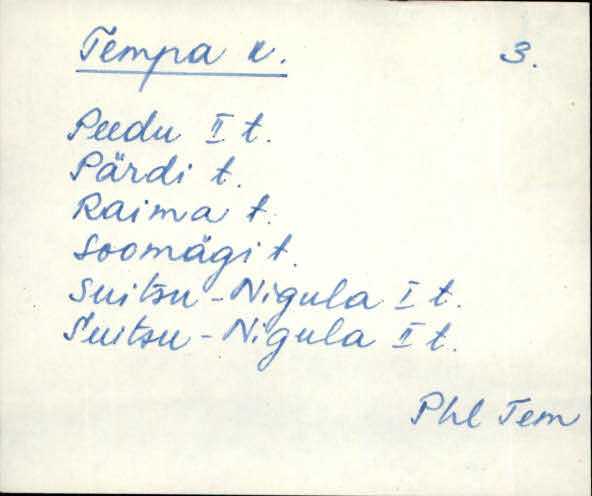 Tempa k. 3.
Peedu II t.
Pärdi t.
Raima t.
Soomägi t.
Suitsu-Nigula I t.
Suitsu-Nigula II t.
Phl Tem